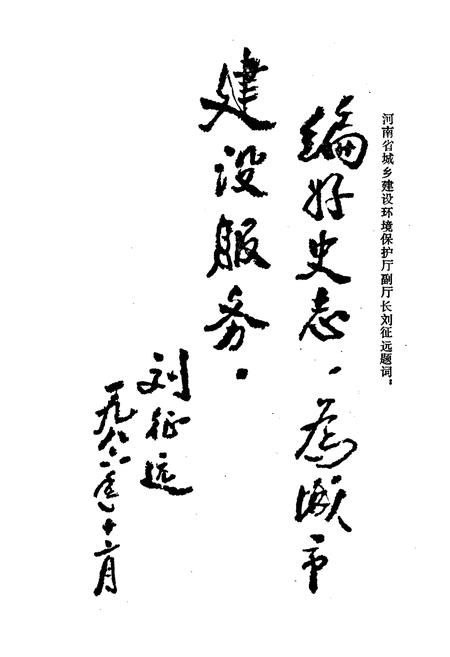 河南省城乡建设环境保护厅副厅长刘征远题词：
编好史志，为城市
建设服务。
刘征远
一九八六年十二月